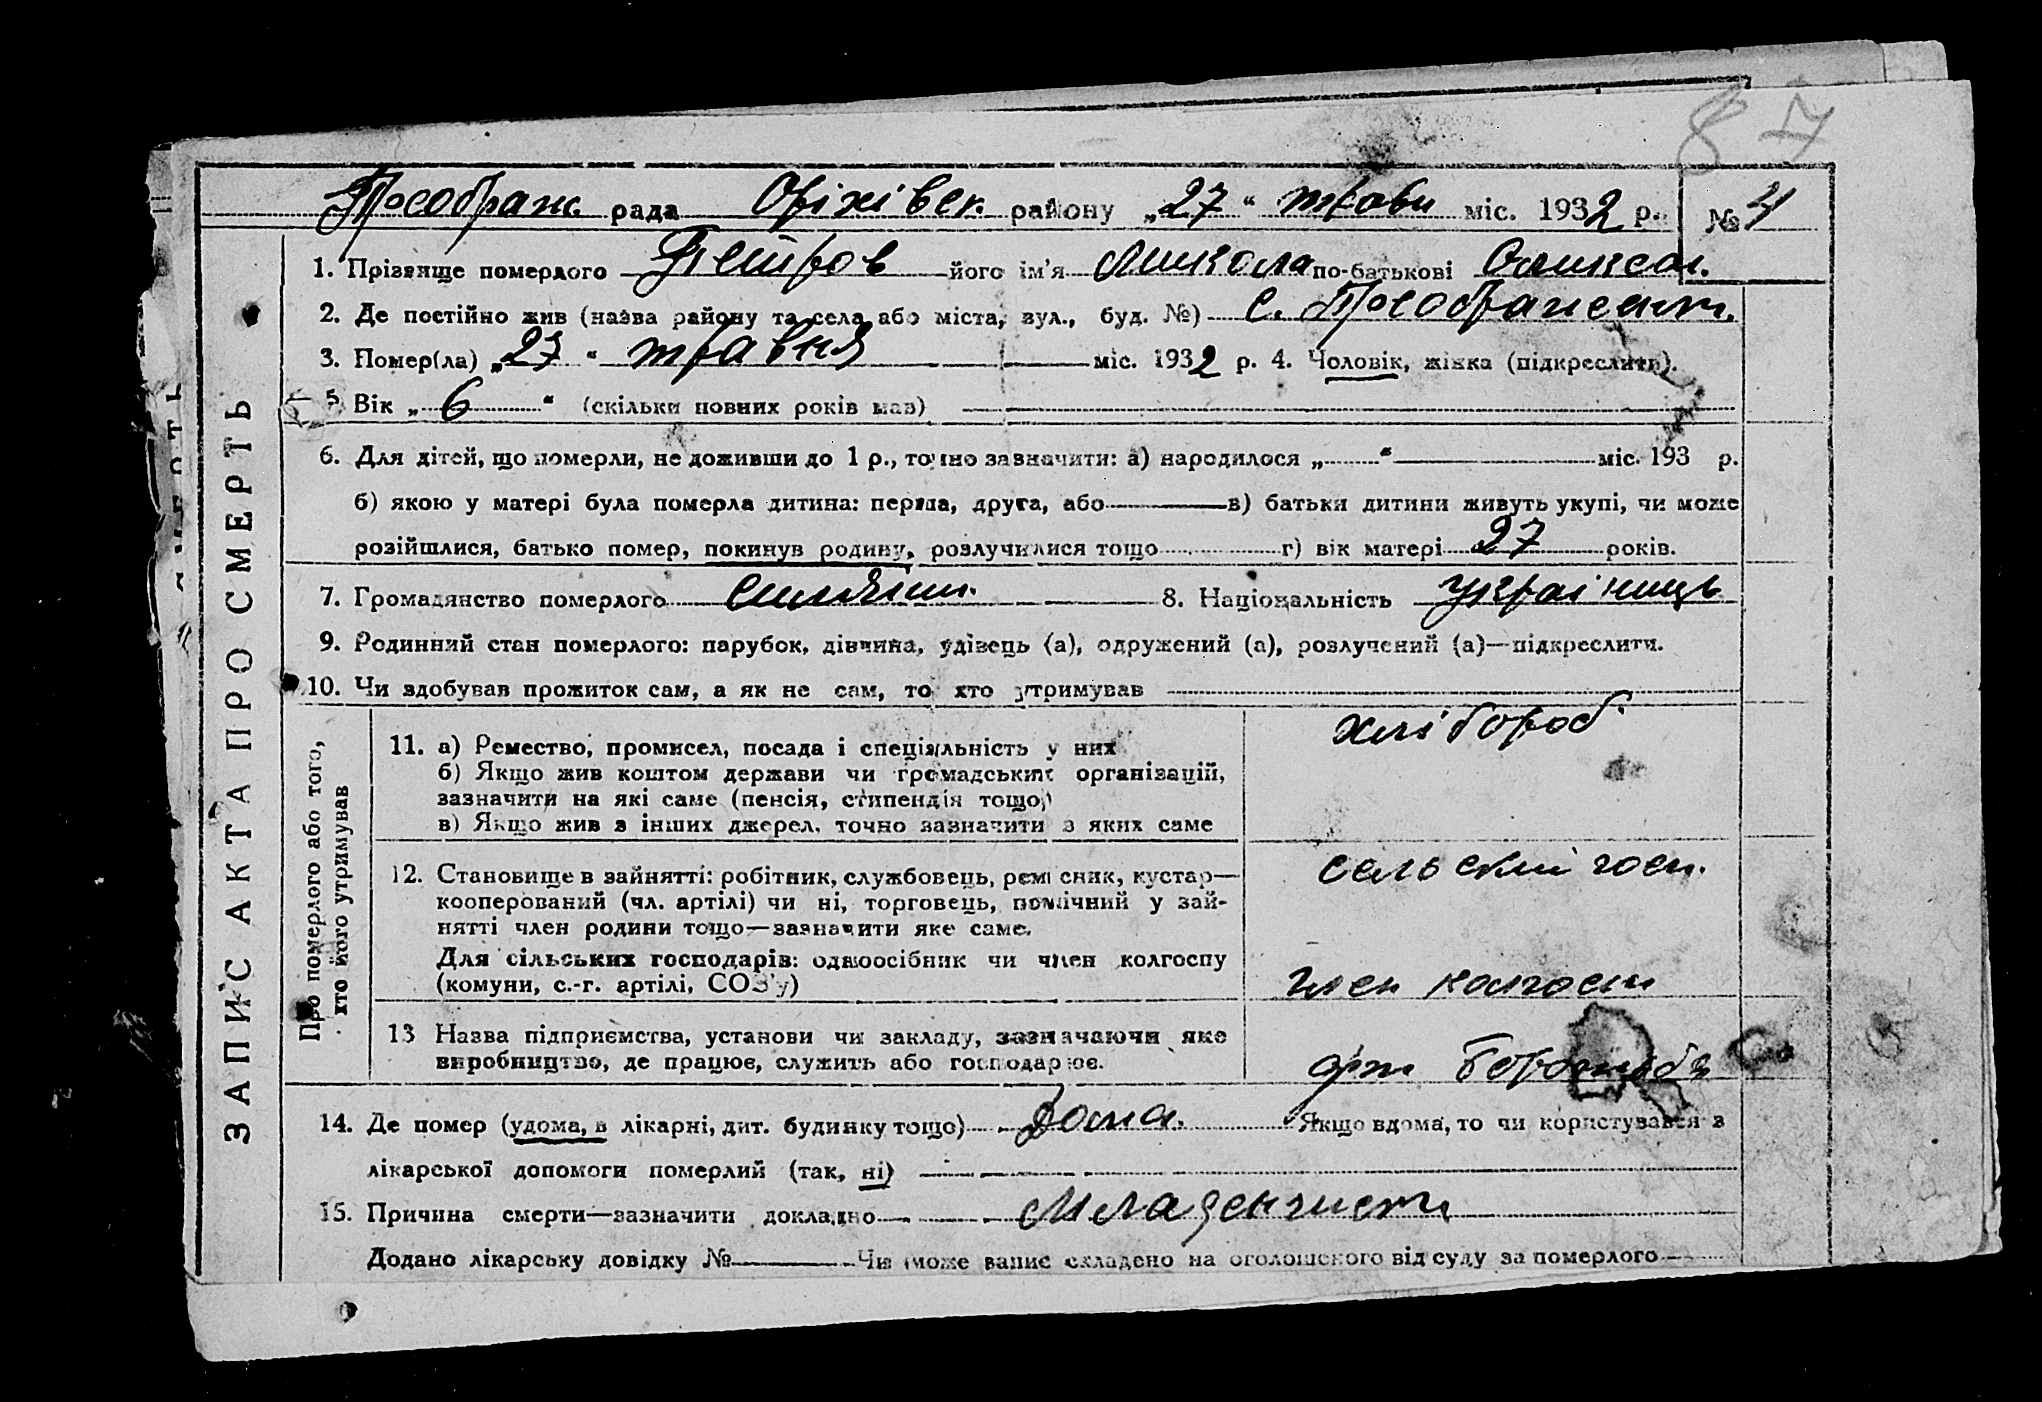 87
Преображ. рада Оріхівск. району „27“ трави міс. 1932 р. № 4
1. Прізвище померлого Петров його ім'я Микола по-батькові Олексан.
2. Де постійно жив (назва району та села або міста, вул., буд. №) с. Преображент.
3. Помер(ла) „27“ травня міс. 1932 р. 4. Чоловік, жінка (підкреслити).
5. Вік „6“ (скільки повних років мав)
6. Для дітей, що померли, не доживши до 1 р., точно зазначити: а) народилося „ “ міс. 193 р.
б) якою у матері була померла дитина: перша, друга, або в) батьки дитини живуть укупі, чи може
розійшлися, батько помер, покинув родину, розлучилися тощо г) вік матері 27 років.
7. Громадянство померлого 8. Національність українець
9. Родинний стан померлого: парубок, дівчина, удівець (а), одружений (а), розлучений (а)—підкреслити.
10. Чи здобував прожиток сам, а як не сам, то хто утримував
ЗАПИС АКТА ПРО СМЕРТЬ
Про померлого або того,
хто його утримував
11. а) Ремество, промисел, посада і спеціяльність у них хлібороб.
б) Якщо жив коштом держави чи громадських організацій,
зазначити на які саме (пенсія, стипендія тощо)
в) Якщо жив з інших джерел, точно зазначити з яких саме
12. Становище в зайнятті: робітник, службовець, ремісник, кустар— сельский госп.
кооперований (чл. артілі) чи ні, торговець, помічний у зай-
нятті член родини тощо—зазначити яке саме.
Для сільських господарів: одноосібник чи член колгоспу
(комуни, с.-г. артілі, СОЗ'у) член колгосп
13 Назва підприємства, установи чи закладу, зазначаючи яке
виробництво, де працює, служить або господарює. арт Боротьба
14. Де помер (удома, в лікарні, дит. будинку тощо) Дома. Якщо вдома, то чи користувався з
лікарської допомоги померлий (так, ні)
15. Причина смерти—зазначити докладно Младенчисти
Додано лікарську довідку № Чи може запис складено на оголошеного від суду за померлого